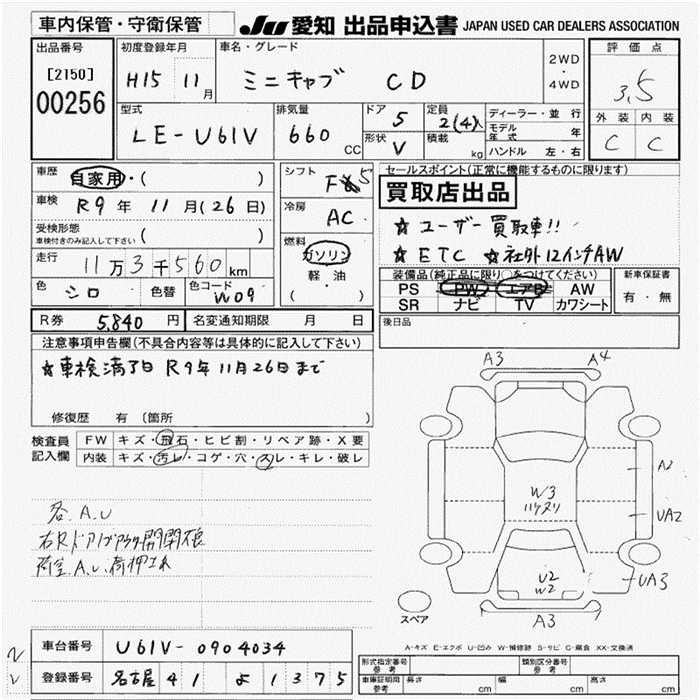 車内保管・守衛保管
JU 愛知 出品申込書 JAPAN USED CAR DEALERS ASSOCIATION
出品番号
[2150]
00256
初度登録年月
H15 11月
車名・グレード
ミニキャブ CD
2WD
・
4WD
評価点
3.5
外装 内装
C C
型式
LE-U61V
排気量
660 CC
ドア 5
形状 V
定員 2(4)
積載 kg
ディーラー・並行
モデル年式 年
ハンドル 左・右
車歴 自家用・( )
車検 R9年 11月(26日)
受検形態
車検付きのみ記入して下さい ( )
走行 11万3千560km
色 シロ 色替 色コード W09
シフト F5
冷房 AC
燃料 ガソリン
軽・油
( )
セールスポイント(正常に機能するものに限ります)
買取店出品
☆ ユーザー買取車!!
☆ ETC ☆社外12インチAW
装備品(純正品に限り○をつけてください)
PS PW エアB AW
SR ナビ TV カワシート
新車保証書
有・無
R券 5,840円 名変通知期限 月 日
後日品
注意事項申告欄(不具合内容等は具体的に記入して下さい)
☆車検満了日 R9年11月26日まで
修復歴 有 (箇所
検査員記入欄
FW キズ・飛石・ヒビ割・リペア跡・X要
内装 キズ・汚レ・コゲ・穴・スレ・キレ・破レ
各A.U
右Rドアノブ
荷室A.U.荷押され
A3 A4
A2
W3
ハケヌリ
UA2
U2
W2
UA3
A3
スペア
A-キズ E-エクボ U-凹み W-補修跡 S-サビ C-腐食 XX-交換済
車台番号 U61V-0904034
登録番号 名古屋 41 よ 1375
形式指定番号 参考
類別区分番号 参考
車庫証明用 参考 長さ cm 幅 cm 高さ cm